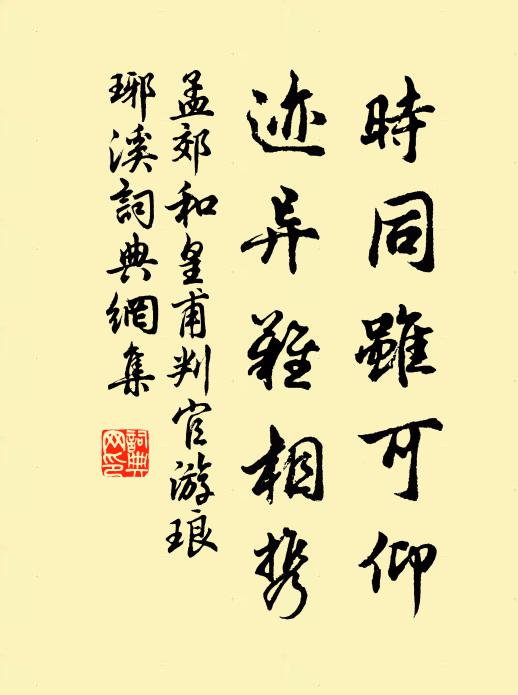 時同雖可仰
迹异難相携
孟郊和皇甫判官游琅
琊溪詞典網集
詞典
网印